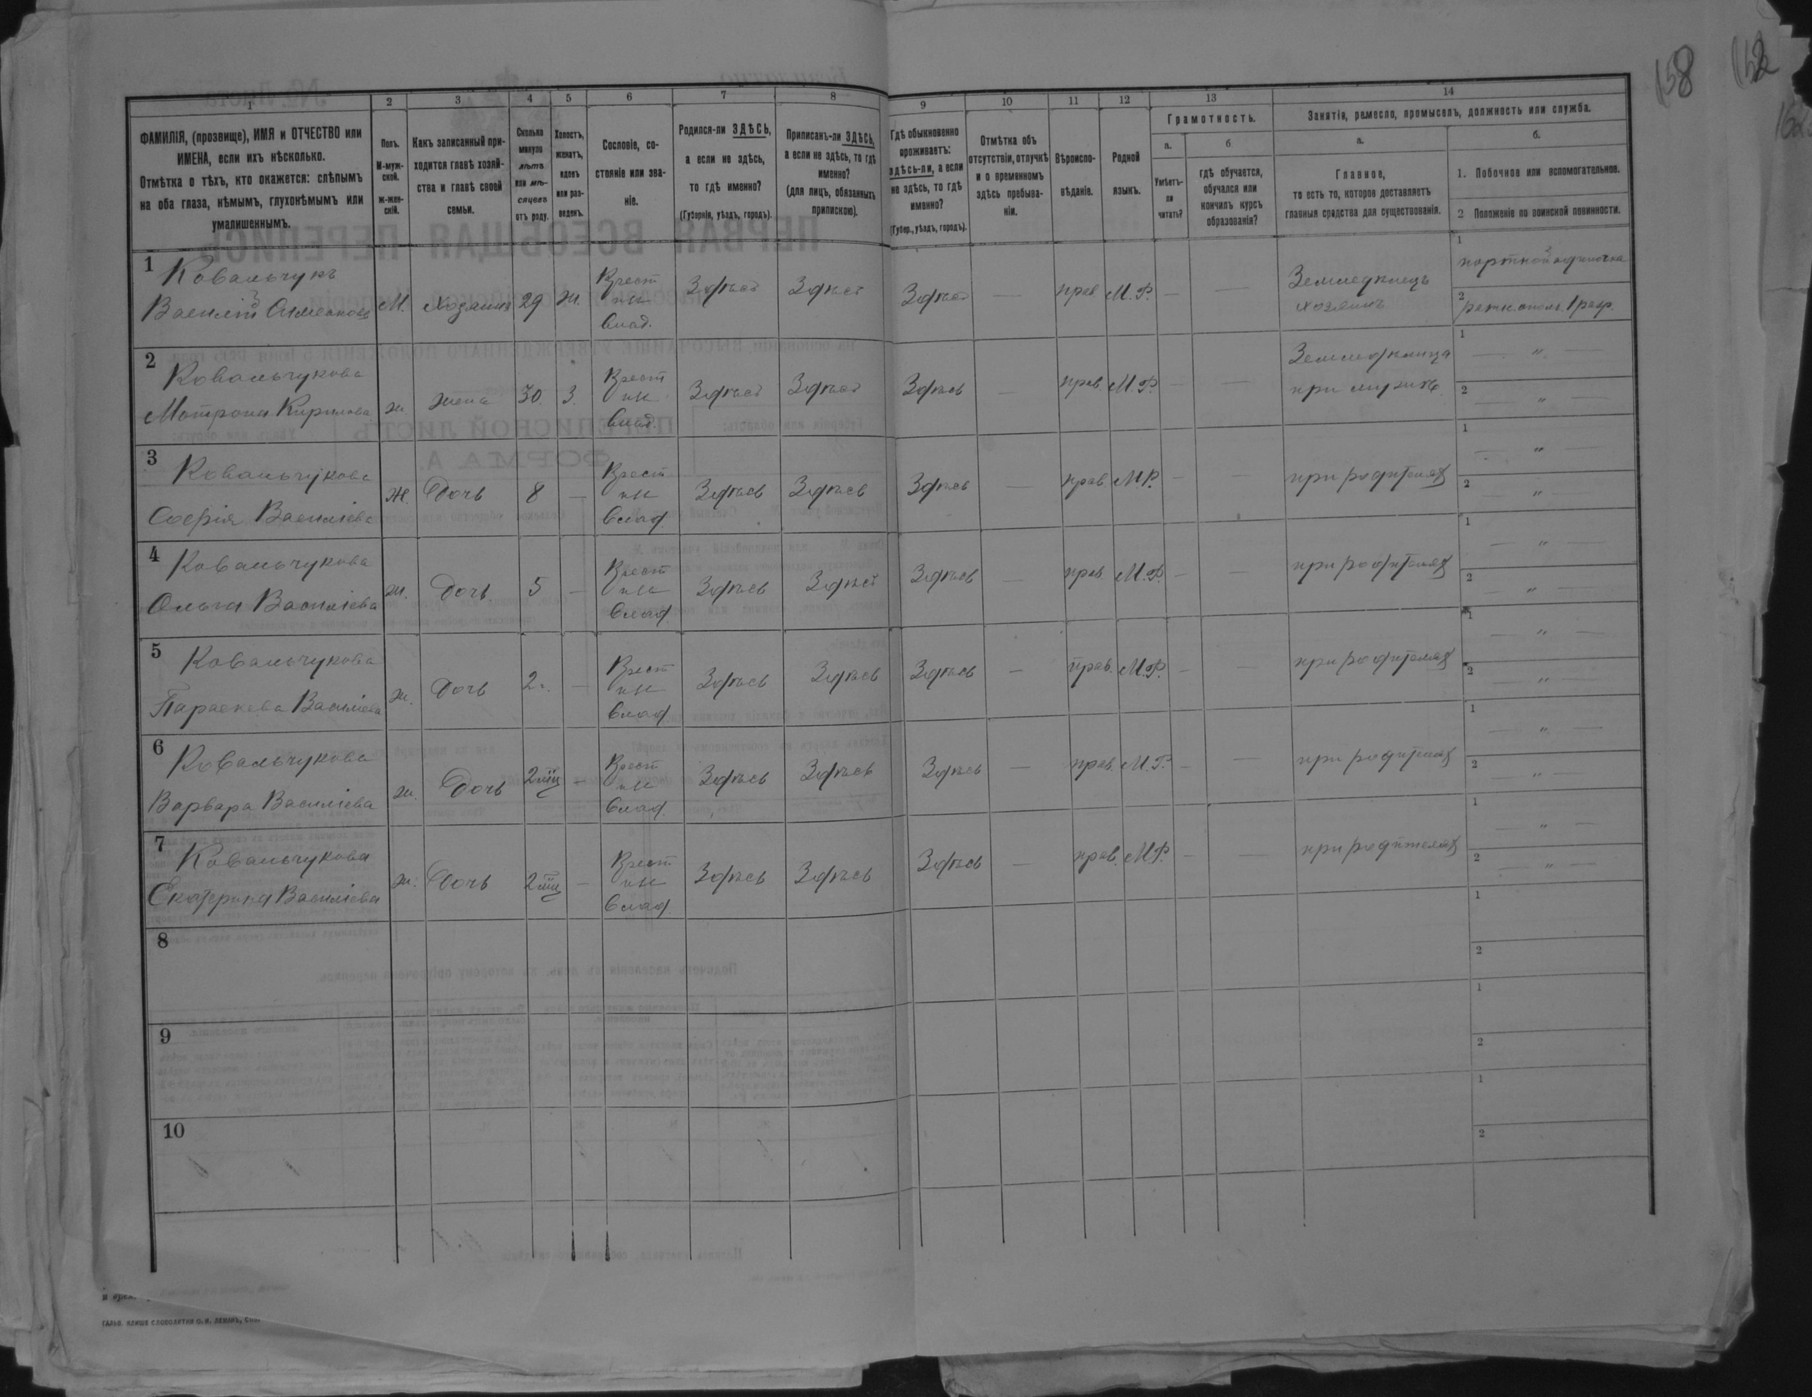 158 152
1 2 3 4 5 6 7 8 9 10 11 12 13 14
ФАМИЛІЯ, (прозвище), ИМЯ и ОТЧЕСТВО или
ИМЕНА, если ихъ нѣсколько.
Отмѣтка о тѣхъ, кто окажется: слѣпымъ
на оба глаза, нѣмымъ, глухонѣмымъ или
умалишеннымъ.
Полъ.
М-муж-
ской.
ж-жен-
скій.
Какъ записанный при-
ходится главѣ хозяй-
ства и главѣ своей
семьи.
Сколько
минуло
лѣтъ
или мѣ-
сяцевъ
отъ роду.
Холостъ,
женатъ,
вдовъ
или раз-
веденъ.
Сословіе, со-
стояніе или зва-
ніе.
Родился-ли ЗДѢСЬ,
а если не здѣсь,
то гдѣ именно?
(Губернія, уѣздъ, городъ).
Приписанъ-ли ЗДѢСЬ,
а если не здѣсь, то гдѣ
именно?
(для лицъ, обязанныхъ
припискою).
Гдѣ обыкновенно
проживаетъ:
здѣсь-ли, а если
не здѣсь, то гдѣ
именно?
(Губер., уѣздъ, городъ).
Отмѣтка объ
отсутствіи, отлучкѣ
и о временномъ
здѣсь пребыва-
ніи.
Вѣроиспо-
вѣданіе.
Родной
языкъ.
Грамотность.
а. б
Умѣетъ-
ли
читать?
гдѣ обучается,
обучался или
кончилъ курсъ
образованія?
Занятія, ремесло, промыселъ, должность или служба.
а. б.
Главное,
то есть то, которое доставляетъ
главныя средства для существованія.
1. Побочное или вспомогательное.
2 Положеніе по воинской повинности.
1 Ковальчукъ
Василій
М. Хозяинъ 29 ж. Крест Здѣсь Здѣсь Здѣсь — прав М.Р. — —
Земледѣлецъ
хозяинъ
1 портной одиночка
2
2 Ковальчукова
Матрона Кирилова ж жена 30 З. Крест Здѣсь Здѣсь Здѣсь — прав М.Р. — —
Земледѣлица
при мужѣ
1 — " —
2 — " —
3 Ковальчукова
Софія Василіева Ж Дочь 8 — Крест Здѣсь Здѣсь Здѣсь — прав М.Р. — — при родителях
1 — " —
2 — " —
4 Ковальчукова
Ольга Василіева ж. Дочь 5 — Крест Здѣсь Здѣсь Здѣсь — прав. М.Р. — — при родителях
1 — " —
2 — " —
5 Ковальчукова
Параскева Василіева ж. Дочь 2 — Крест Здѣсь Здѣсь Здѣсь — прав. М.Р. — — при родителях
1 — " —
2 — " —
6 Ковальчукова
Варвара Василіева ж. Дочь 2 — Крест Здѣсь Здѣсь Здѣсь — прав. М.Р. — — при родителях
1 — " —
2 — " —
7 Ковальчукова
Екатерина Василіева ж. Дочь 2 — Крест Здѣсь Здѣсь Здѣсь — прав. М.Р. — — при родителях
1 — " —
2 — " —
8 1
2
9 1
2
10 1
2